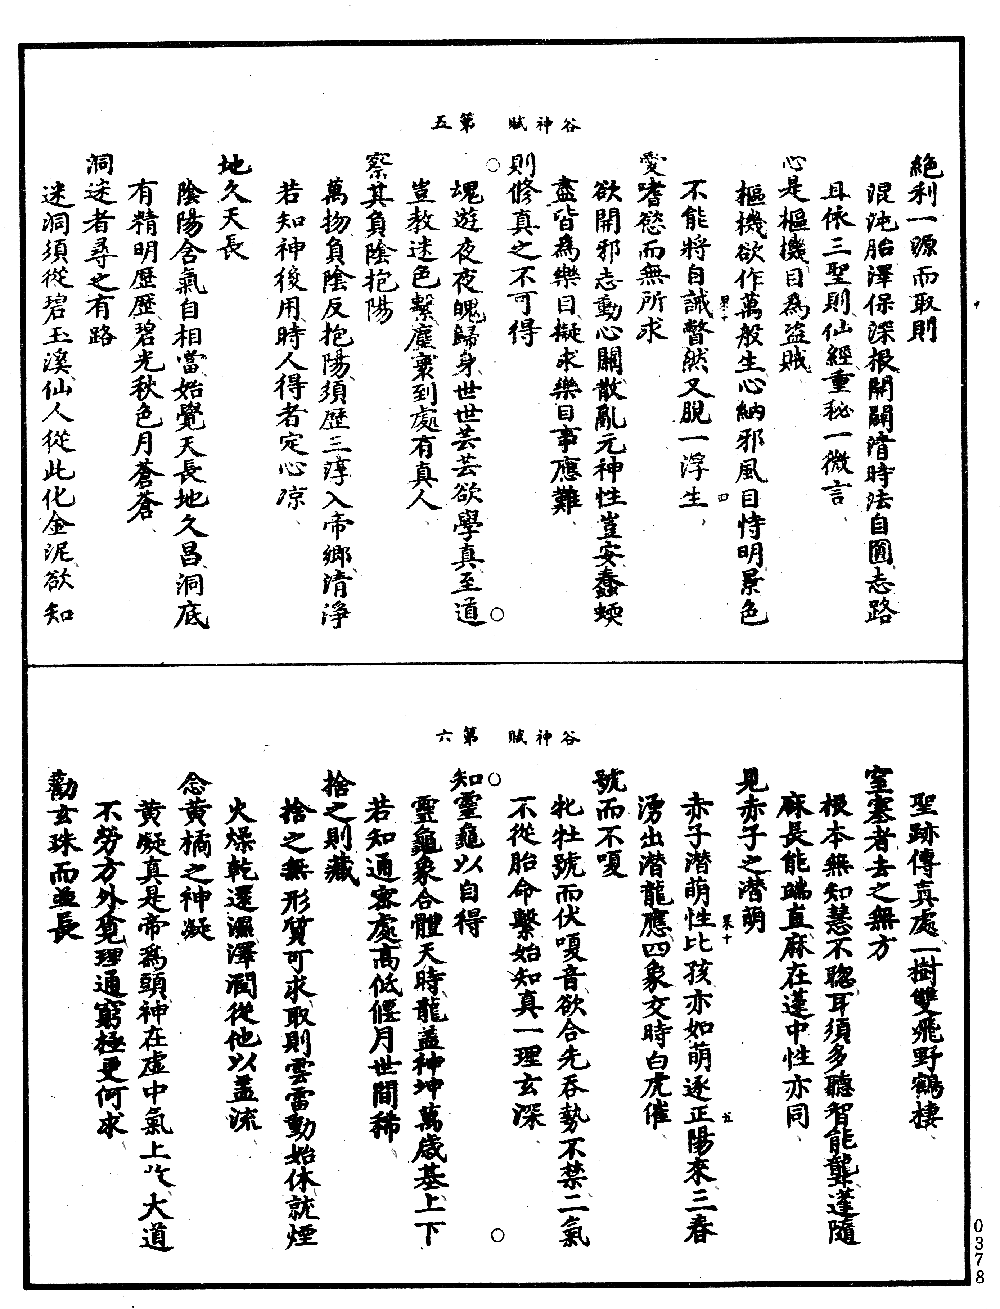 谷神賦 第五
絶利一源而取則
混沌胎澤保深根開闢清時法自圎志路
且依三聖則仙經重秘一微言
心是樞機目為盗賊
樞機欲作萬般生心納邪風目恃明景色
不能將自誡瞥然又脫一浮生
愛嗜慾而無所求
欲開邪志動心關散亂元神性豈安蠢蝡
盡皆為樂目擬求樂目事應難
則修真之不可得
塊遊夜夜魄歸身世世芸芸欲學真至道
豈教迷色繫塵裏到處有真人
察其負陰抱陽
萬物負陰反抱陽須歷三淳入帝鄉清淨
若知神後用時人得者定心凉
地久天長
陰陽含氣自相當始覺天長地久昌洞底
有精明歷歷碧光秋色月蒼蒼
洞迷者尋之有路
迷洞須從碧玉溪仙人從此化金泥欲知
谷神賦 第六
聖跡傳真處一樹雙飛野鶴棲
室塞者去之無方
根本無知慧不聦耳須多聽智能龔蓬隨
麻長能端直麻在蓬中性亦同
見赤子之潛萌
赤子潛萌性比孩亦如萌逐正陽來三春
湧出潜龍應四象交時白虎催
號而不嗄
牝牡號而伏嗄音欲合先吞勢不禁二氣
不從胎命繫始知真一理玄深
知靈龜以自得
靈龜象合體天時龍盖神坤萬歲基上下
若知通察處高低偃月世間稀
捨之則藏
捨之無形質可求取則雲雷動始休就煙
火燥乾還濕澤潤從他以盖流
念黃橘之神凝
黃凝真是帝為頭神在虛中氣上大道
不勞方外覓理通窮極更何求
勸玄珠而益長
0378